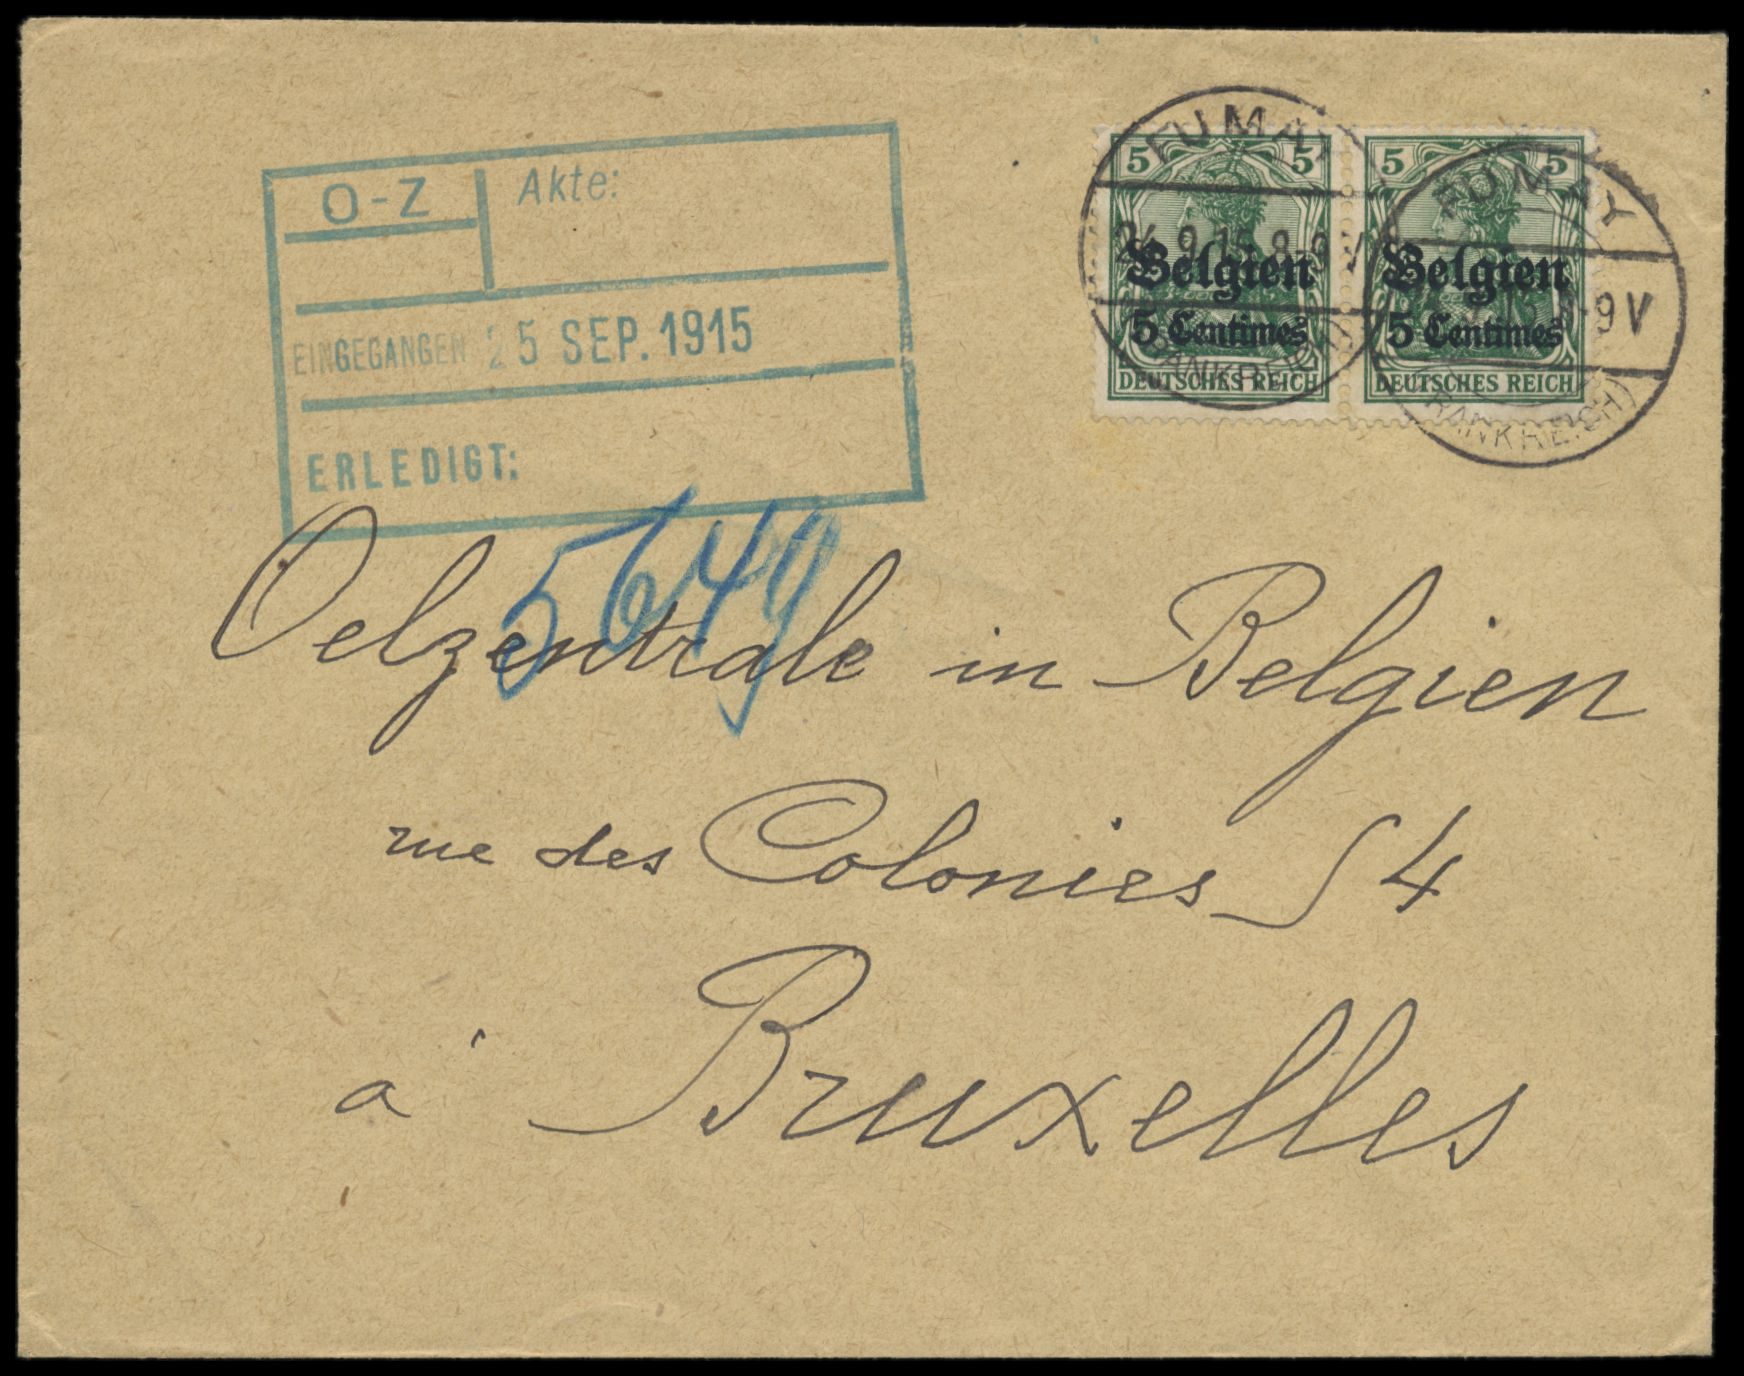 O-Z Akte:
EINGEGANGEN 25 SEP. 1915
ERLEDIGT:
5 5
Belgien
5 Centimes
DEUTSCHES REICH
5 5
Belgien
5 Centimes
DEUTSCHES REICH
FUMAY
24.9.15.8-9V
(FRANKREICH)
FUMAY
8-9V
(FRANKREICH)
5649
Oelzentrale in Belgien
rue des Colonies 54
à Bruxelles